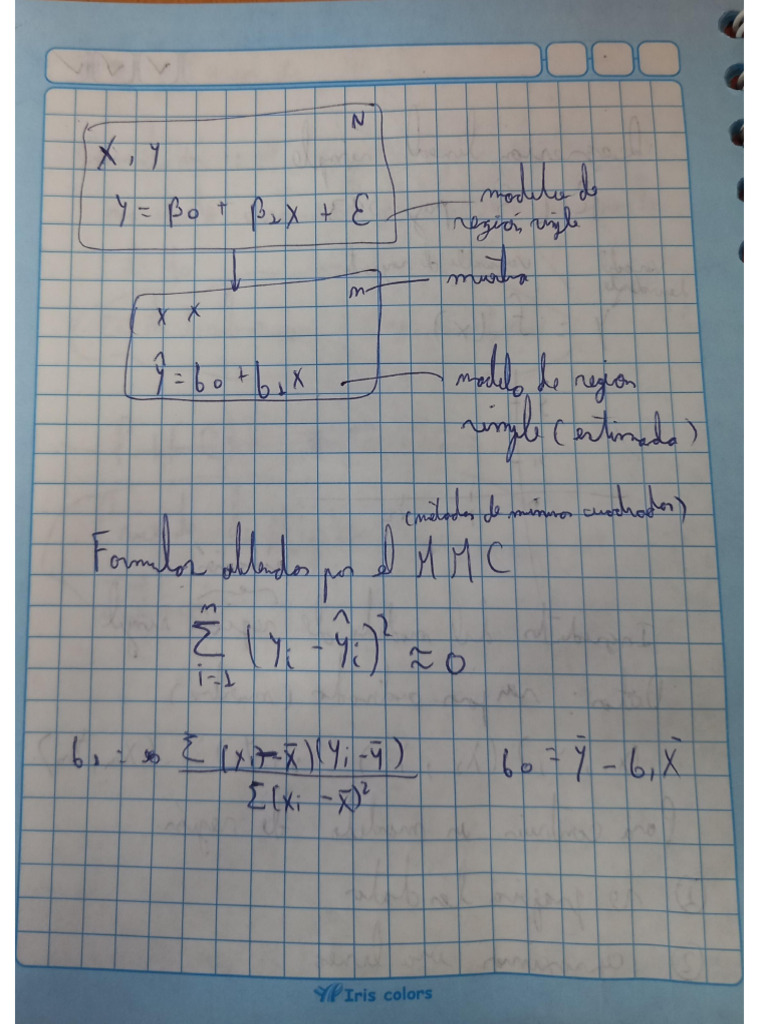 N
X, Y
Y = β0 + β1X + ε
modelo de
región simple
n
muestra
x x
ŷ = b0 + b1x
modelo de region
simple (estimada)
(métodos de minimos cuadrados)
Formulas obtenidas por el MMC
n
∑ (yi - ŷi)² ≈ 0
i=1
b1 = ∑ (xi - x̄)(yi - ȳ) b0 = ȳ - b1x̄
∑(xi - x̄)²
Iris colors